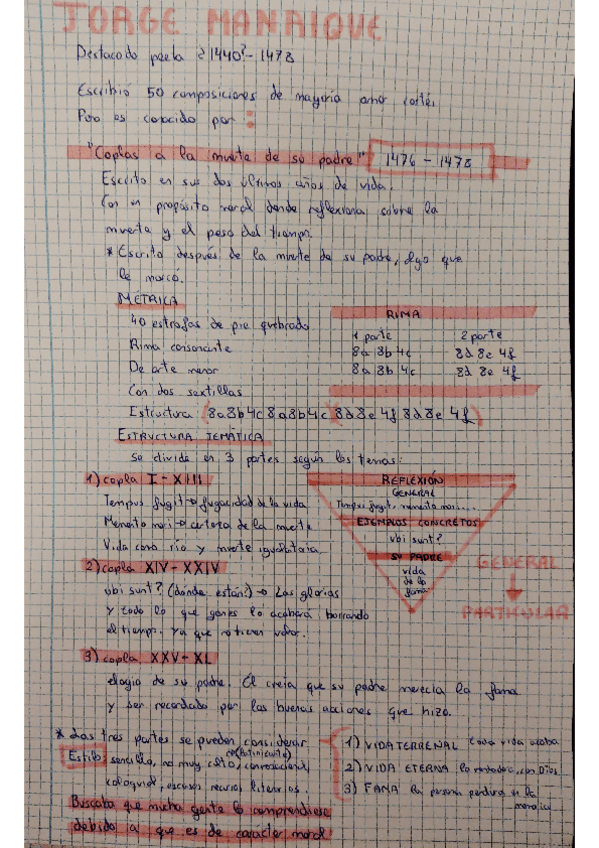 JORGE MANRIQUE
Destacado poeta ¿1440?- 1478
Escribió 50 composiciones de mayoría amor cortés
Pero es conocido por :
"Coplas a la muerte de su padre" 1476 - 1478
Escrito en sus dos últimos años de vida.
Con un propósito moral donde reflexiona sobre la
muerte y el peso del tiempo.
* Escrito después de la muerte de su padre, algo que
le marcó.
MÉTRICA
40 estrofas de pie quebrado
Rima consonante
De arte menor
Con dos sextillas
RIMA
1 parte 2 parte
8a 8b 4c 8d 8e 4f
8a 8b 4c 8d 8e 4f
Estructura (8a8b4c8a8b4c)(8d8e4f 8d8e4f)
ESTRUCTURA TEMÁTICA
Se divide en 3 partes según los temas:
1) copla I - XIII
Tempus fugit → fugacidad de la vida
Memento mori → certeza de la muerte
Vida como río y muerte igualitaria.
2) copla XIV - XXIV
ubi sunt? (dónde están?) → Las glorias
y todo lo que ganes lo acabará borrando
el tiempo. ya que no tienen valor.
REFLEXIÓN
GENERAL
Tempus fugit, memento mori...
EJEMPLOS CONCRETOS
ubi sunt?
SU PADRE
vida
de la
fama
GENERAL
↓
PARTICULAR
3) copla XXV - XL
elogio de su padre. Él creía que su padre merecía la fama
y ser recordado por las buenas acciones que hizo.
* Las tres partes se pueden considerar
1) VIDA TERRENAL cada vida acaba
2) VIDA ETERNA la verdadera, con Dios
3) FAMA la persona perdura en la
memoria
Estilo sencillo, no muy culto, convencional
coloquial, escasos recursos literarios.
Buscaba que mucha gente lo comprendiese
debido a que es de carácter moral